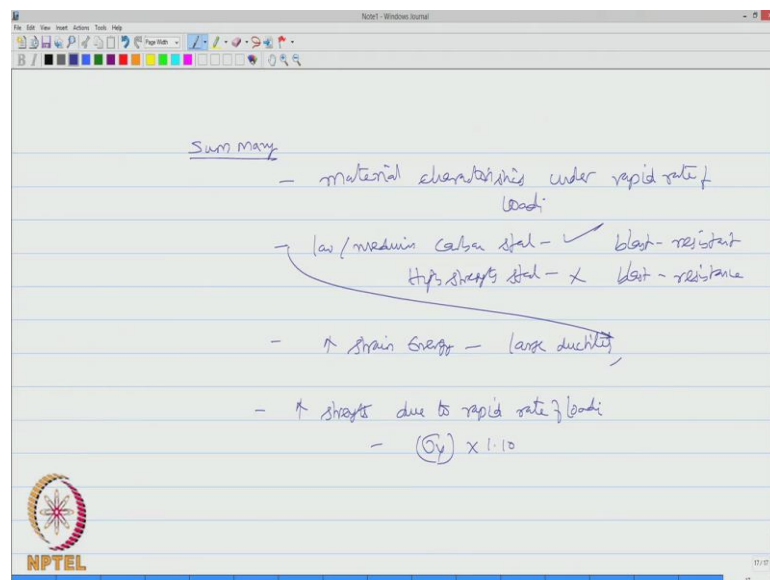 Note1 - Windows Journal
File Edit View Insert Actions Tools Help
Page Width
B I
Summary
- material characteristics under rapid rate of
loadi
- low/medium carbon steel - ✓ blast-resistant
High strength steel - x blast-resistance
- ↑ strain Energy - large ductility
- ↑ strength due to rapid rate of loadi
- (σy) x 1.10
NPTEL
17/17